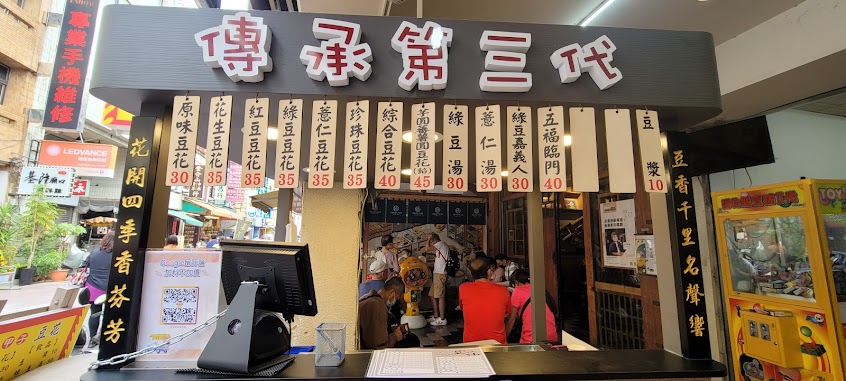 傳承第三代
專業手機維修
LEDVANCE
原味豆花 30
花生豆花 35
紅豆豆花 35
綠豆豆花 35
薏仁豆花 35
珍珠豆花 35
綜合豆花 40
芋圓蕃薯圓豆花(餡) 45
綠豆湯 30
薏仁湯 30
綠豆嘉義人 30
五福臨門 40
豆漿 10
花開四季香芬芳
豆香千里名聲響
豆花